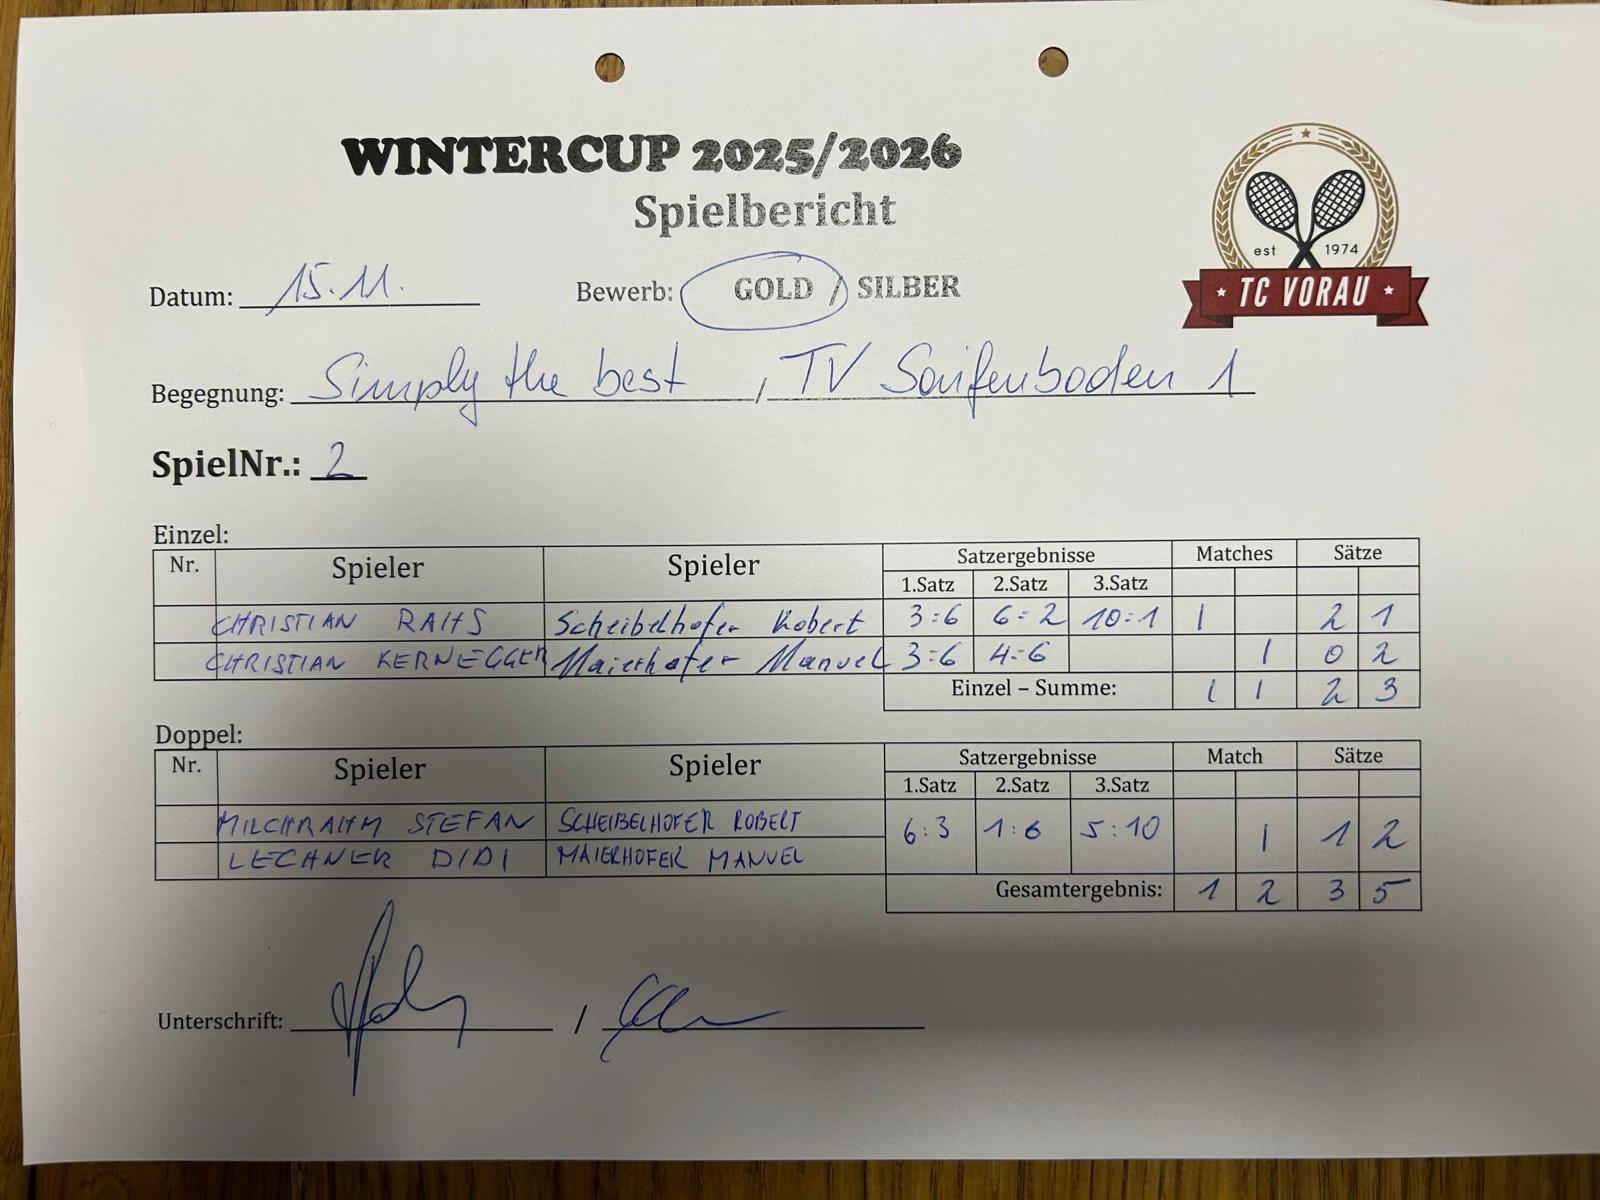 WINTERCUP 2025/2026
Spielbericht
est 1974
TC VORAU
Datum: 15.11. Bewerb: GOLD / SILBER
Begegnung: Simply the best / TV Saifenboden 1
SpielNr.: 2
Einzel:
Nr. Spieler Spieler Satzergebnisse Matches Sätze
1.Satz 2.Satz 3.Satz
CHRISTIAN RAHS Scheibelhofer Robert 3:6 6:2 10:1 1 2 1
CHRISTIAN KERNEGGER Maierhofer Manuel 3:6 4:6 1 0 2
Einzel – Summe: 1 1 2 3
Doppel:
Nr. Spieler Spieler Satzergebnisse Match Sätze
1.Satz 2.Satz 3.Satz
MILCHRAHM STEFAN SCHEIBELHOFER ROBERT 6:3 1:6 5:10 1 1 2
LECHNER DIDI MAIERHOFER MANUEL
Gesamtergebnis: 1 2 3 5
Unterschrift: /